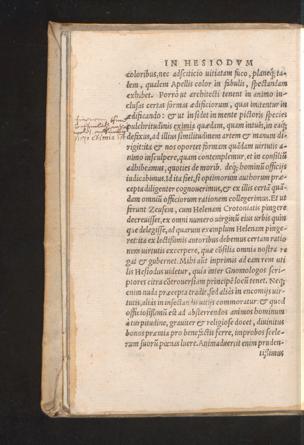 IN HESIODVM
coloribus, nec adsciticio uitiatam fuco, planeq́; ta-
dem, qualem Apelles color in tabulis, spectandam
exhibet. Porrò ut architecti tenent in animo in-
clusas certas formas ædificiorum, quas imitentur in
ædificando: & ut insidet in mente pictoris species
pulcritudinis eximia quædam, quam intuẽs, in eaq́;
defixus, ad illius similitudinem artem & manum di-
rigit: ita & nos oportet formam quãdam uirtutis a-
nimo insculpere, quam contemplemur, et in consiliũ
adhibeamus, quoties de morib. deq́; hominũ officijs
iudicabimus. Id ita fiet, si optimorum authorum præ-
cepta diligenter cognouerimus, & ex illis certã quã-
dam omniũ officiorum rationem collegerimus. Et ut
ferunt Zeusem, cum Helenam Crotoniatis pingere
decreuisset, ex omni numero uirginũ eius urbis quin
que delegisse, ad quarum exemplum Helenam pinge-
ret: ita ex lectissimis autoribus debemus certam ratio
nem uirtutis excerpere, quæ consilia omnia nostra re
gat & gubernet. Mihi aũt inprimis ad eam rem uti
lis Hesiodus uidetur, quis inter Gnomologos scri-
ptores citra cõtrouersiam principẽ locũ tenet. Neq́;
enim nuda præcepta tradit, sed aliàs in encomijs uir-
tutis, aliàs in insectandis uitijs commoratur: & quod
officiosissimũ est ad absterrendos animos hominum
à turpitudine, grauiter & religiose docet, diuinitus
bonos præmia pro benefictis ferre, improbos scele-
rum suorũ pœnas luere. Animaduertit enim pruden-
tissimus